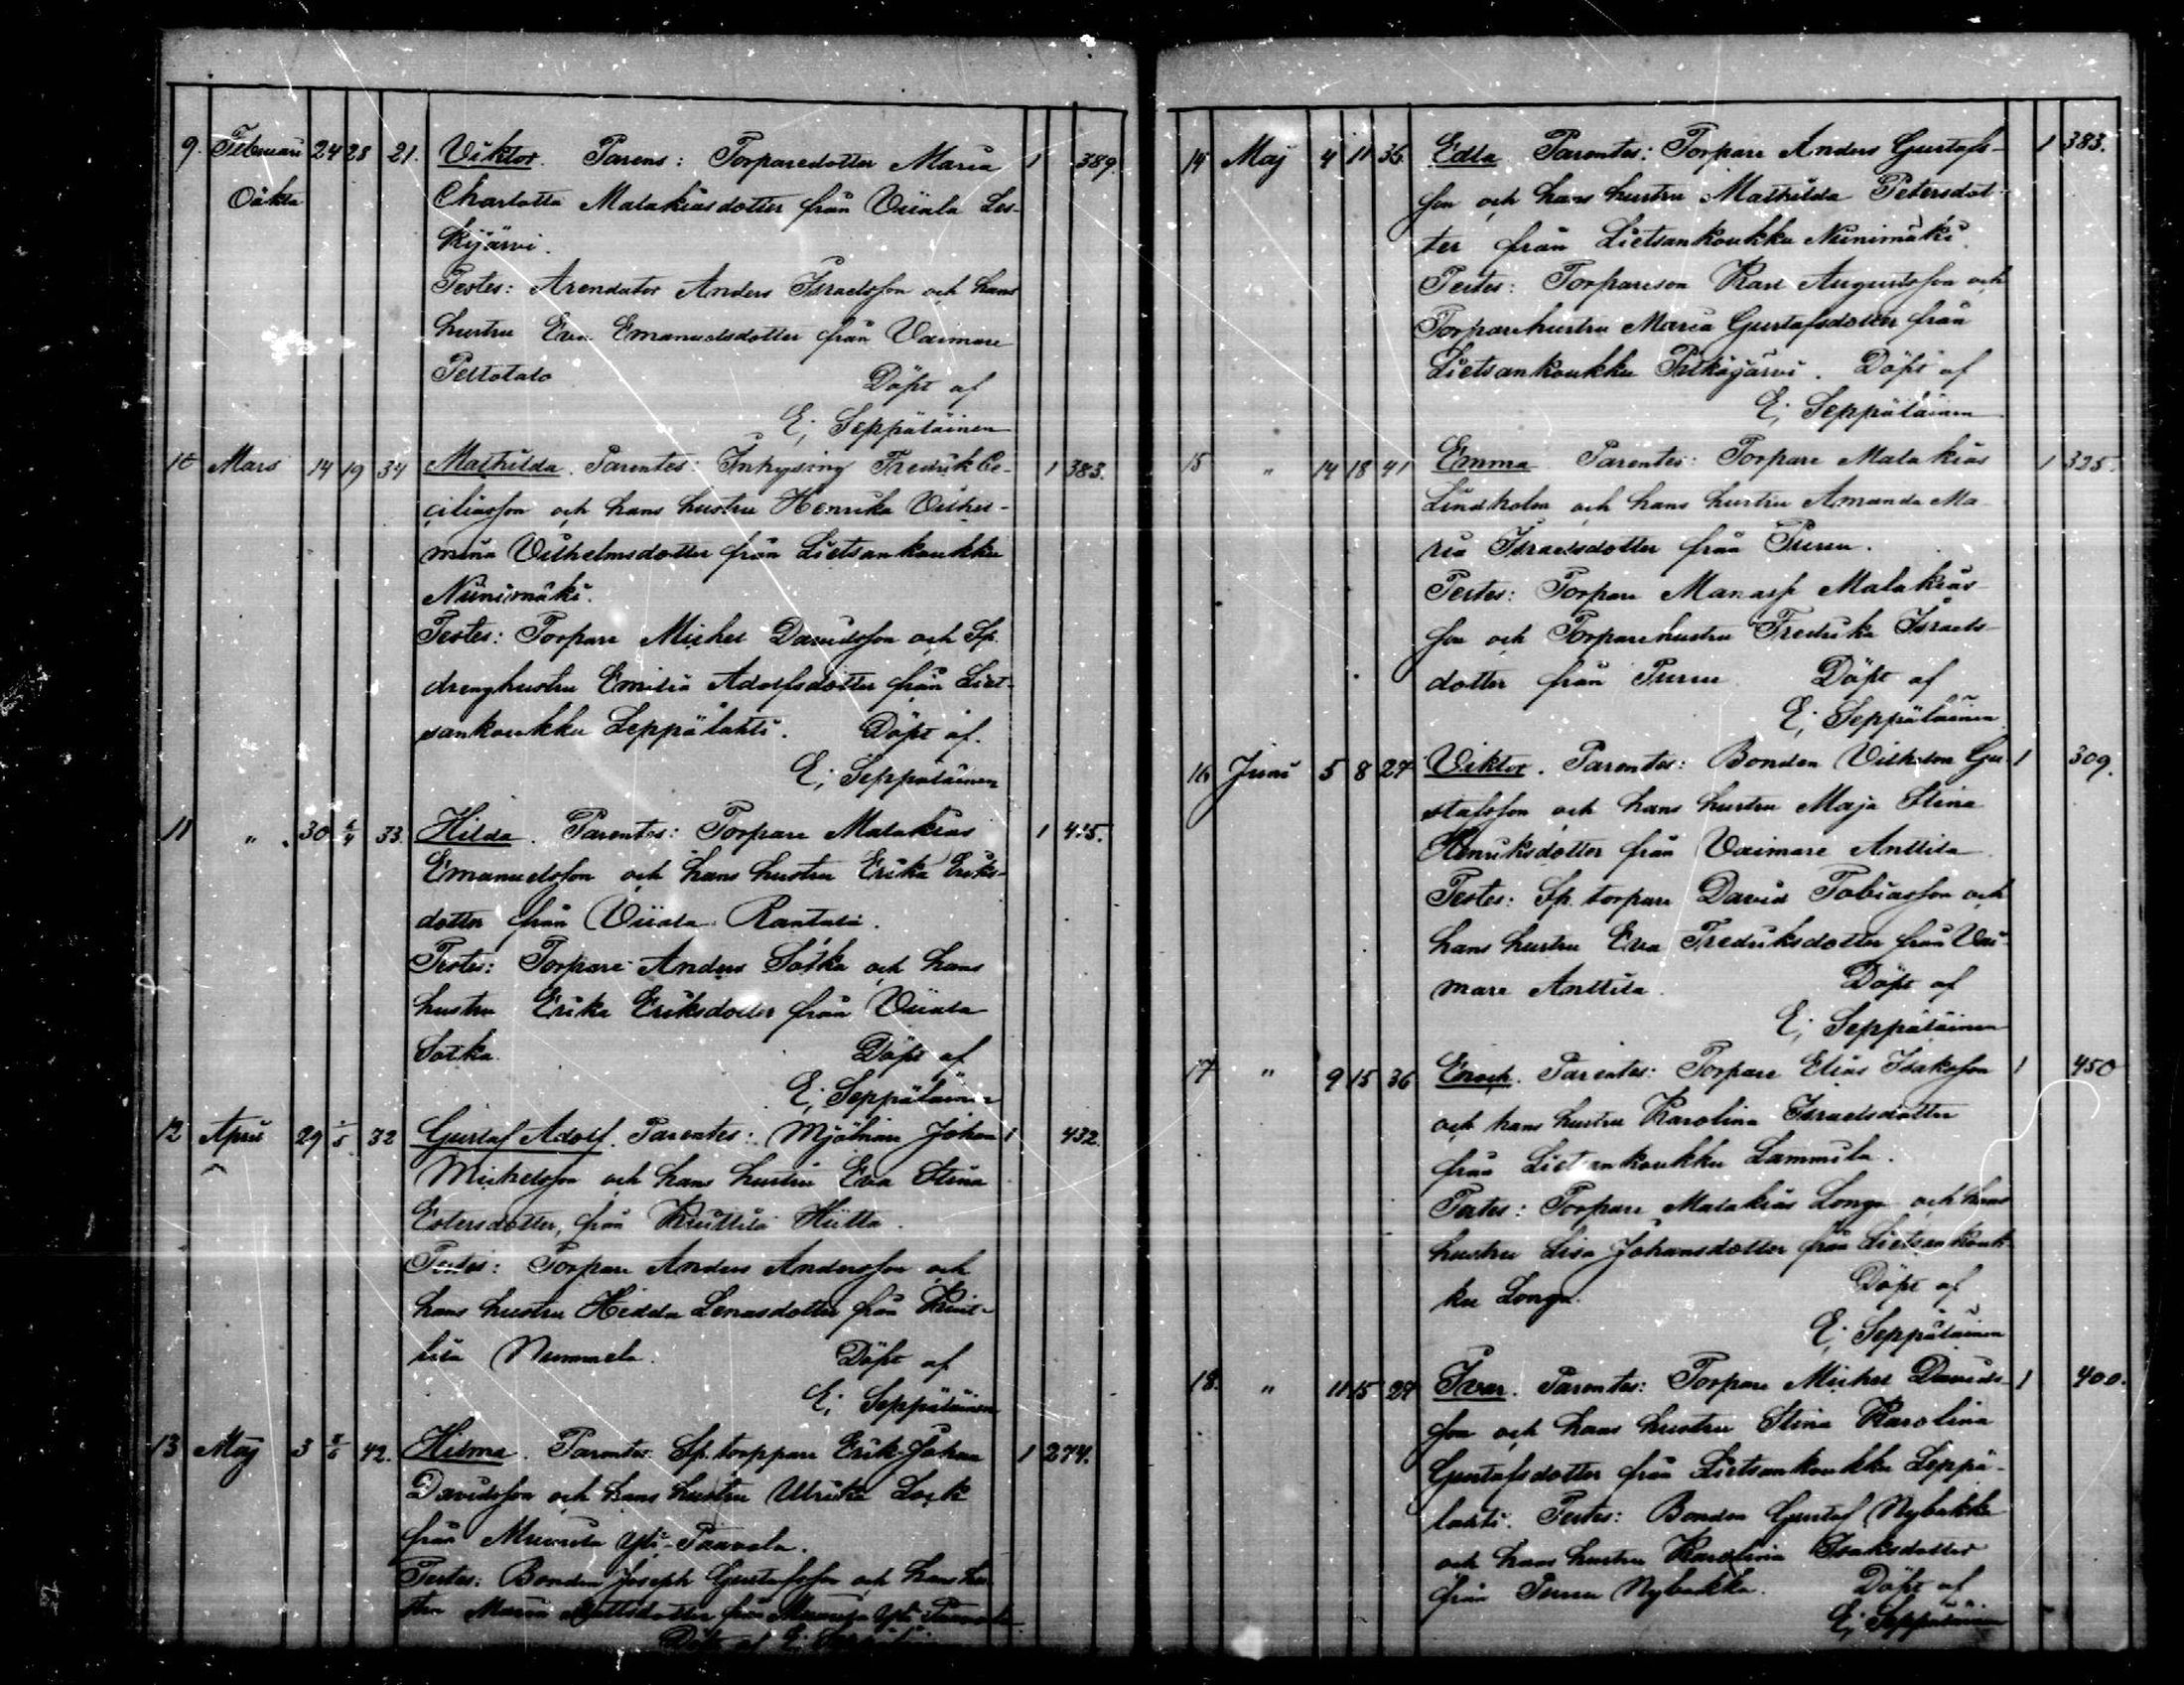 9. Februari 24 28 21. Viktor. Parens: Torparedotter Maria 1 389.
Oäkta Charlotta Malakiasdotter från Viiala Les-
kijärvi.
Testes: Arendator Anders Israelsson och hans
hustru Eva Emanuelsdotter från Vaimare
Peltotalo Döpt af
E; Seppäläinen
10 Mars 14 19 34 Mathilda. Parentes: Inhysing Fredrik Ce- 1 383.
ciliasson och hans hustru Henrika Vilhel-
mina Vilhelmsdotter från Lietsankoukku
Niinimäki.
Testes: Torpare Michel Davidsson och Sp.
drenghustru Emilia Adolfsdotter från Liet-
sankoukku Leppälahti. Döpt af.
E; Seppäläinen
11 " 30 6/4 33 Hilda. Parentes: Torpare Malakias 1 415.
Emanuelsson och hans hustru Erika Eriks-
dotter från Viiala Rantala.
Testes: Torpare Anders Sotka och hans
hustru Erika Eriksdotter från Viiala
Sotka. Döpt af
E; Seppäläinen
12 April 29 1/5 32 Gustaf Adolf. Parentes: Mjölnare Johan 1 432.
Michelsson och hans hustru Eva Stina
Estersdotter, från Kiuttilä Hiitta.
Testes: Torpare Anders Andersson och
hans hustru Hedda Lenasdotter från Kiut-
tilä Nummela. Döpt af
E; Seppäläinen
13 Maj 3 8/5 42. Hilma. Parentes: Sp. torppare Erik Johan 1 274.
Davidsson och hans hustru Ulrika Lock
från Muurila Yli-Paavola.
Testes: Bonden Joseph Gustafsson och hans hu-
stru Maria Mattsdotter från Muurila Yli-Paavola
Döpt af E; Seppäläinen
14 Maj 4 11 36 Edla Parentes: Torpare Anders Gustafs- 1 383.
son och hans hustru Mathilda Petersdot-
ter från Lietsankoukku Niinimäki.
Testes: Torpareson Karl Augustsson och
Torparehustru Maria Gustafsdotter från
Lietsankoukku Pitkäjärvi. Döpt af
E; Seppäläinen
15 " 14 18 41 Emma Parentes: Torpare Malakias 1 325.
Lindholm och hans hustru Amanda Ma-
ria Israelsdotter från Puru.
Testes: Torpare Manasse Malakias-
son och Torparehustru Fredrika Israels-
dotter från Puru Döpt af
E; Seppäläinen
16 Juni 5 8 27 Viktor. Parentes: Bonden Vilhelm Gu- 1 309.
stafsson och hans hustru Maja Stina
Henriksdotter från Vaimare Anttila
Testes: Sp. torpare David Tobiasson och
hans hustru Eva Fredriksdotter från Vai-
mare Anttila. Döpt af
E; Seppäläinen
17 " 9 15 36 Enoch. Parentes: Torpare Elias Isaksson 1 450
och hans hustru Karolina Israelsdotter
från Lietsankoukku Lammila.
Testes: Torpare Malakias Longa och hans
hustru Lisa Johansdotter från Lietsankouk-
ku Longa. Döpt af
E; Seppäläinen
18. " 11 15 27 Ivar. Parentes: Torpare Michel Davids- 1 400.
son och hans hustru Stina Karolina
Gustafsdotter från Lietsankoukku Leppä-
lahti. Testes: Bonden Gustaf Nybakka
och hans hustru Karolina Isaksdotter
från Puru Nybakka. Döpt af
E; Seppäläinen